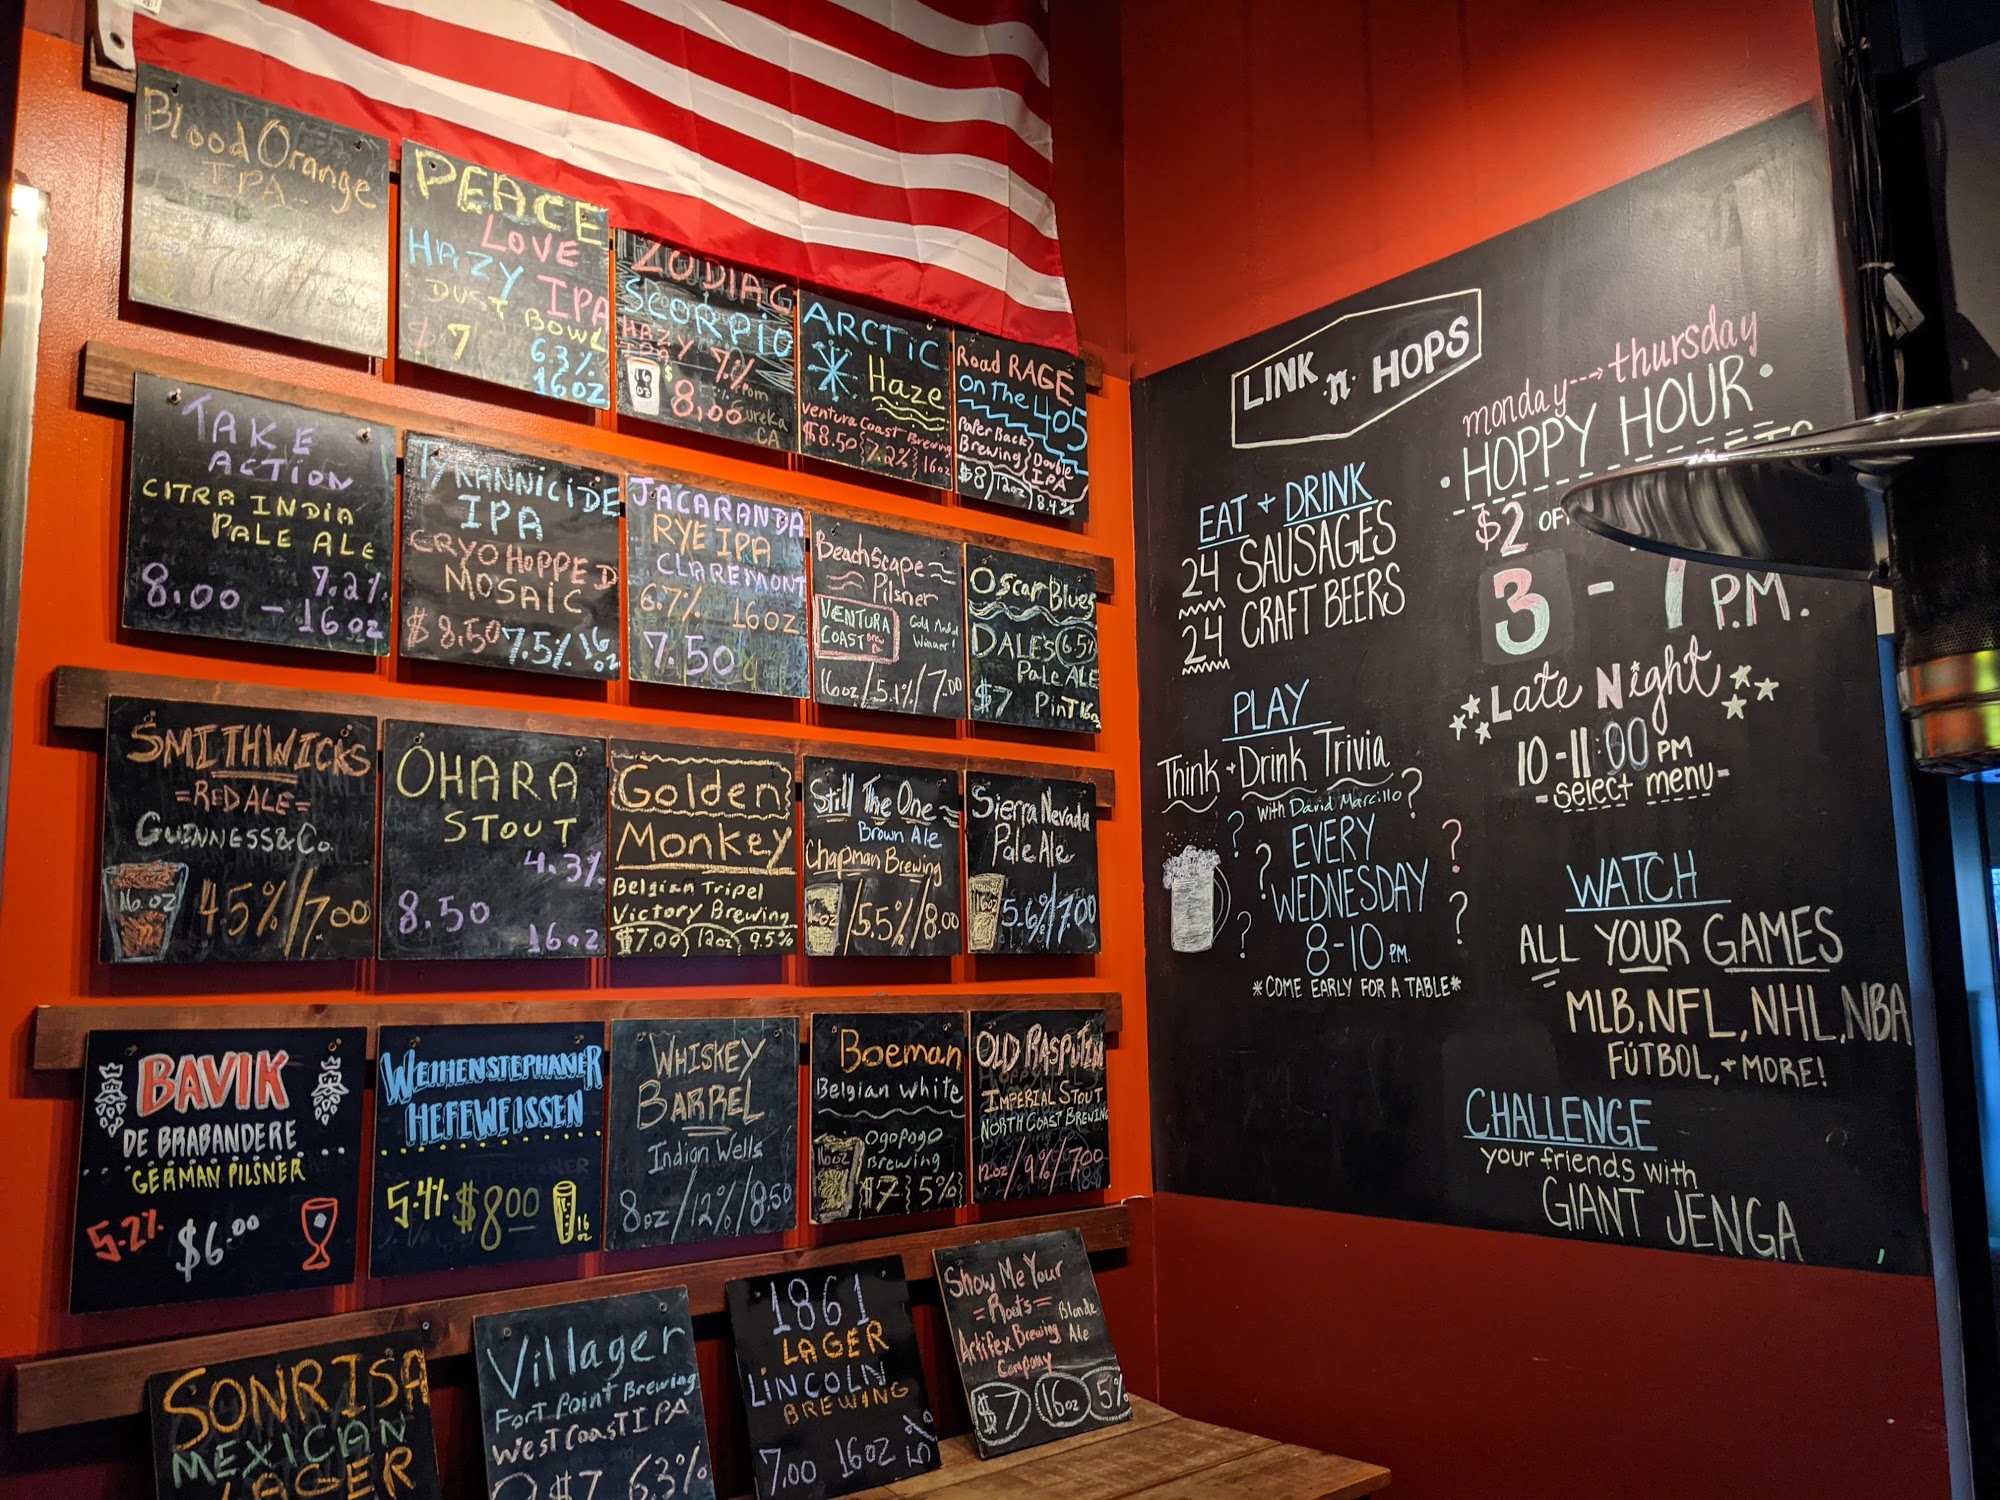 Blood Orange
IPA
PEACE
LOVE
HAZY IPA
DUST BOWL
$7
6.3%
16oz
ZODIAC
SCORPIO
HAZY 7%
IPA
$8.00
From
Eureka
CA
ARCTIC
Haze
Ventura Coast Brewing
$8.50 7.2% 16oz
Road RAGE
on the 405
Paper Back
Brewing
Double
IPA
$8 12oz 8.4%
TAKE
ACTION
CITRA INDIA
PALE ALE
7.2%
8.00 - 16oz
TYRANNICIDE
IPA
CRYO HOPPED
MOSAIC
$8.50 7.5% 16oz
JACARANDA
RYE IPA
CLAREMONT
6.7% 16oz
7.50
Beachscape
Pilsner
VENTURA
COAST BREW
Gold Medal
Winner!
16oz/5.1%/7.00
Oscar Blues
DALES 6.5%
Pale ALE
$7 PinT 16oz
SMITHWICKS
=RED ALE=
GUINNESS & Co.
16.oz 4.5%/7.00
OHARA
STOUT
4.3%
8.50
16oz
Golden
Monkey
Belgian Tripel
Victory Brewing
$7.00 12oz 9.5%
Still The One
Brown Ale
Chapman Brewing
16oz /5.5%/8.00
Sierra Nevada
Pale Ale
16oz 5.6%/7.00
BAVIK
DE BRABANDERE
GERMAN PILSNER
5.2% $6.00
WEIHENSTEPHANER
HEFEWEISSEN
5.4% $8.00 16oz
WHISKEY
BARREL
Indian Wells
8oz/12%/8.50
Boeman
Belgian White
Ogopogo
Brewing
16oz $7 5%
OLD RASPUTIN
IMPERIAL STOUT
NORTH COAST BREWING
12oz/9%/7.00
SONRISA
MEXICAN
LAGER
Villager
Fort Point Brewing
West Coast IPA
$7 6.3%
1861
LAGER
LINCOLN
BREWING
7.00 16oz 5%
Show Me Your
=Roots=
Blonde
Ale
Artifex Brewing
Company
$7 16oz 5%
LINK n HOPS
EAT + DRINK
24 SAUSAGES
24 CRAFT BEERS
PLAY
Think + Drink Trivia
with David Marcillo
EVERY
WEDNESDAY
8-10 PM.
*COME EARLY FOR A TABLE*
monday---> thursday
• HOPPY HOUR •
$2 OFF
3 - 7 P.M.
Late Night
10-11:00 PM
-select menu-
WATCH
ALL YOUR GAMES
MLB, NFL, NHL, NBA
FÚTBOL, + MORE!
CHALLENGE
your friends with
GIANT JENGA